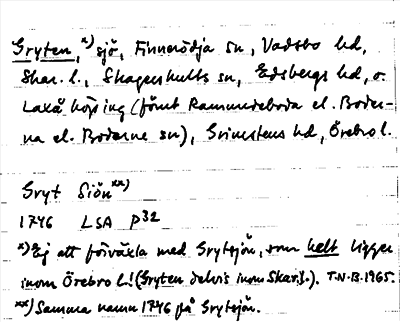 Gryten,x) sjö, Finnerödja sn, Vadsbo hd,
Skar. l., Skagershults sn, Edsbergs hd, o.
Laxå köping (förut Ramundeboda el. Boder-
na el. Boderne sn), Grimstens hd, Örebro l.
Gryt Siönxx)
1746 LSA P32
x) Ej att förväxla med Grytsjön, som helt ligger
inom Örebro L! (Gryten delvis inom Skar. l.). T.N.B. 1965.
xx) Samma namn 1746 på Grytsjön.